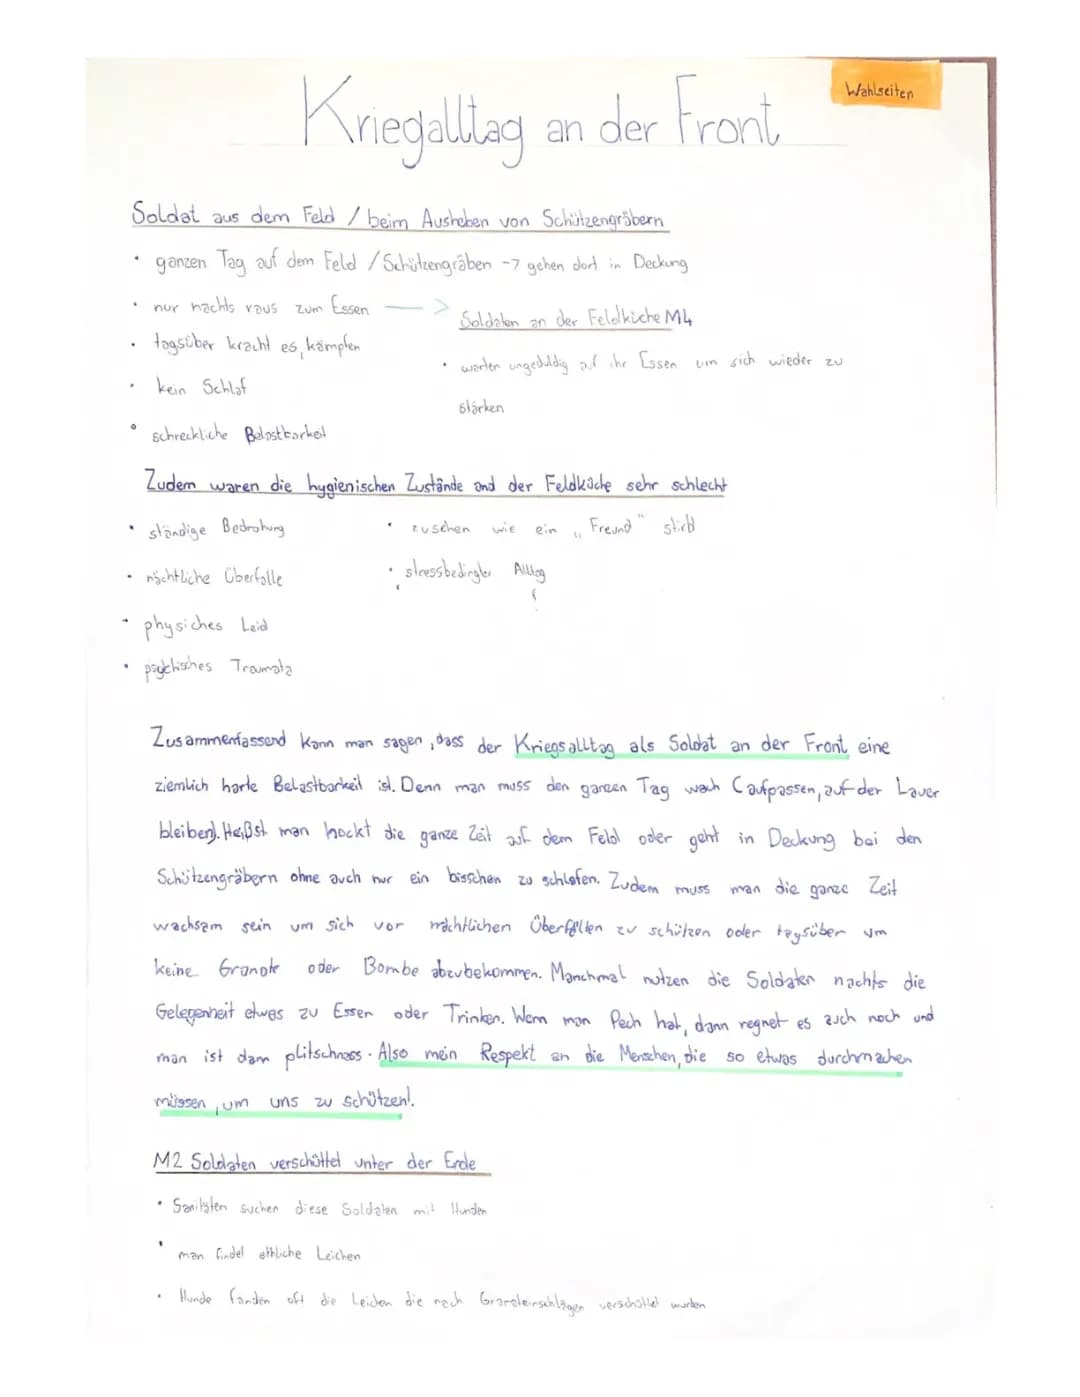 Wahlseiten
Kriegalltag an der Front
Soldat aus dem Feld / beim Ausheben von Schützengräbern
• ganzen Tag auf dem Feld / Schützengräben -> gehen dort in Deckung
• nur nachts raus zum Essen —>
Soldaten an der Feldküche M4
• tagsüber kracht es, kämpfen
• warten ungeduldig auf ihr Essen um sich wieder zu
stärken
• kein Schlaf
• schreckliche Belastbarkeit
Zudem waren die hygienischen Zustände and der Feldküche sehr schlecht
• ständige Bedrohung
• zusehen wie ein „Freund" stirbt
• nächtliche Überfälle
• stressbedingter Alltag
• physiches Leid
• psychisches Traumata
Zusammenfassend kann man sagen, dass der Kriegsalltag als Soldat an der Front eine
ziemlich harte Belastbarkeit ist. Denn man muss den ganzen Tag wach (aufpassen, auf der Lauer
bleiben). Heißst man hockt die ganze Zeit auf dem Feld oder geht in Deckung bei den
Schützengräbern ohne auch nur ein bisschen zu schlafen. Zudem muss man die ganze Zeit
wachsam sein um sich vor nächtlichen Überfällen zu schützen oder tagsüber um
keine Granate oder Bombe abzubekommen. Manchmal nutzen die Soldaten nachts die
Gelegenheit etwas zu Essen oder Trinken. Wenn man Pech hat, dann regnet es auch noch und
man ist dann plitschnass. Also mein Respekt an die Menschen, die so etwas durchmachen
müssen, um uns zu schützen!
M2 Soldaten verschüttet unter der Erde
• Sanitäten suchen diese Soldaten mit Hunden
• man findet etliche Leichen
• Hunde fanden oft die Leichen die nach Granateinschlägen verschüttet wurden